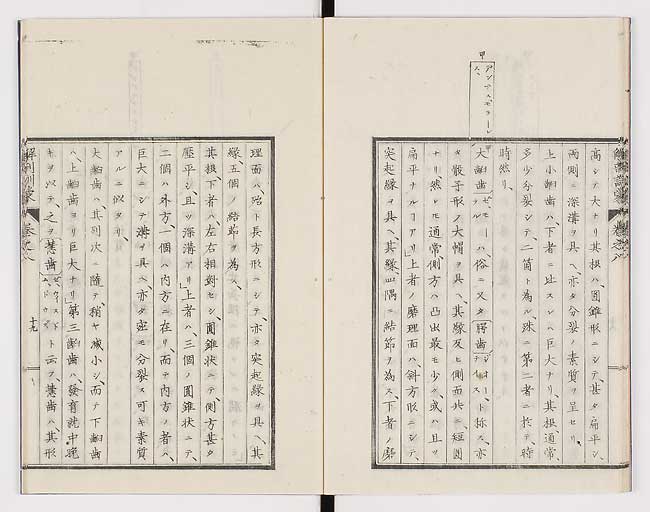 高シテ大ナリ其根ハ圓錐形ニシテ、甚タ扁平シ、
兩側ニ深溝ヲ具ヘ、亦タ分裂ノ素質ヲ呈セリ、
上小齶齒ハ、下者ニ比スレハ巨大ナリ、其根通常、
多少分裂シテ、二箇ト為ル、殊ニ第二者ニ於テ時
時然リ、
大齶齒ハ俗ニ又タ齶齒ト称ス、亦
タ骰子形ノ大帽ヲ具ヘ、其縁及ヒ側面共ニ短圓
ナリ、然レモ通常、側方ハ凸出最モ少ク、或ハ且ツ
扁平ナルアリ」上者ノ磨理面ハ斜方形ニシテ、
突起縁ヲ具ヘ、其縁、四隅ニ結節ヲ為ス、下者ノ磨
理面ハ、殆ト長方形ニシテ、亦タ突起縁ヲ具ヘ、其
縁、五個ノ結節ヲ為ス、
其根、下者ハ、左右相對セシ、圓錐状ニテ、側方甚タ
壓平シ、且ツ深溝アリ」上者ハ、三個ノ圓錐状ニテ、
二個ハ外方、一個ハ内方ニ在リ、而テ内方ノ者ハ、
巨大ニシテ溝ヲ具ヘ、亦タ必モ分裂ス可キ素質
アルニ似タリ、
大齶齒ハ、其列次ニ隨テ、稍ヤ減小シ、而テ下齶齒
ハ、上齶齒ヨリ巨大ナリ」第三齶齒ハ、發育就中晩
キヲ以テ、之ヲ慧齒ト云フ、慧齒ハ其形
十九